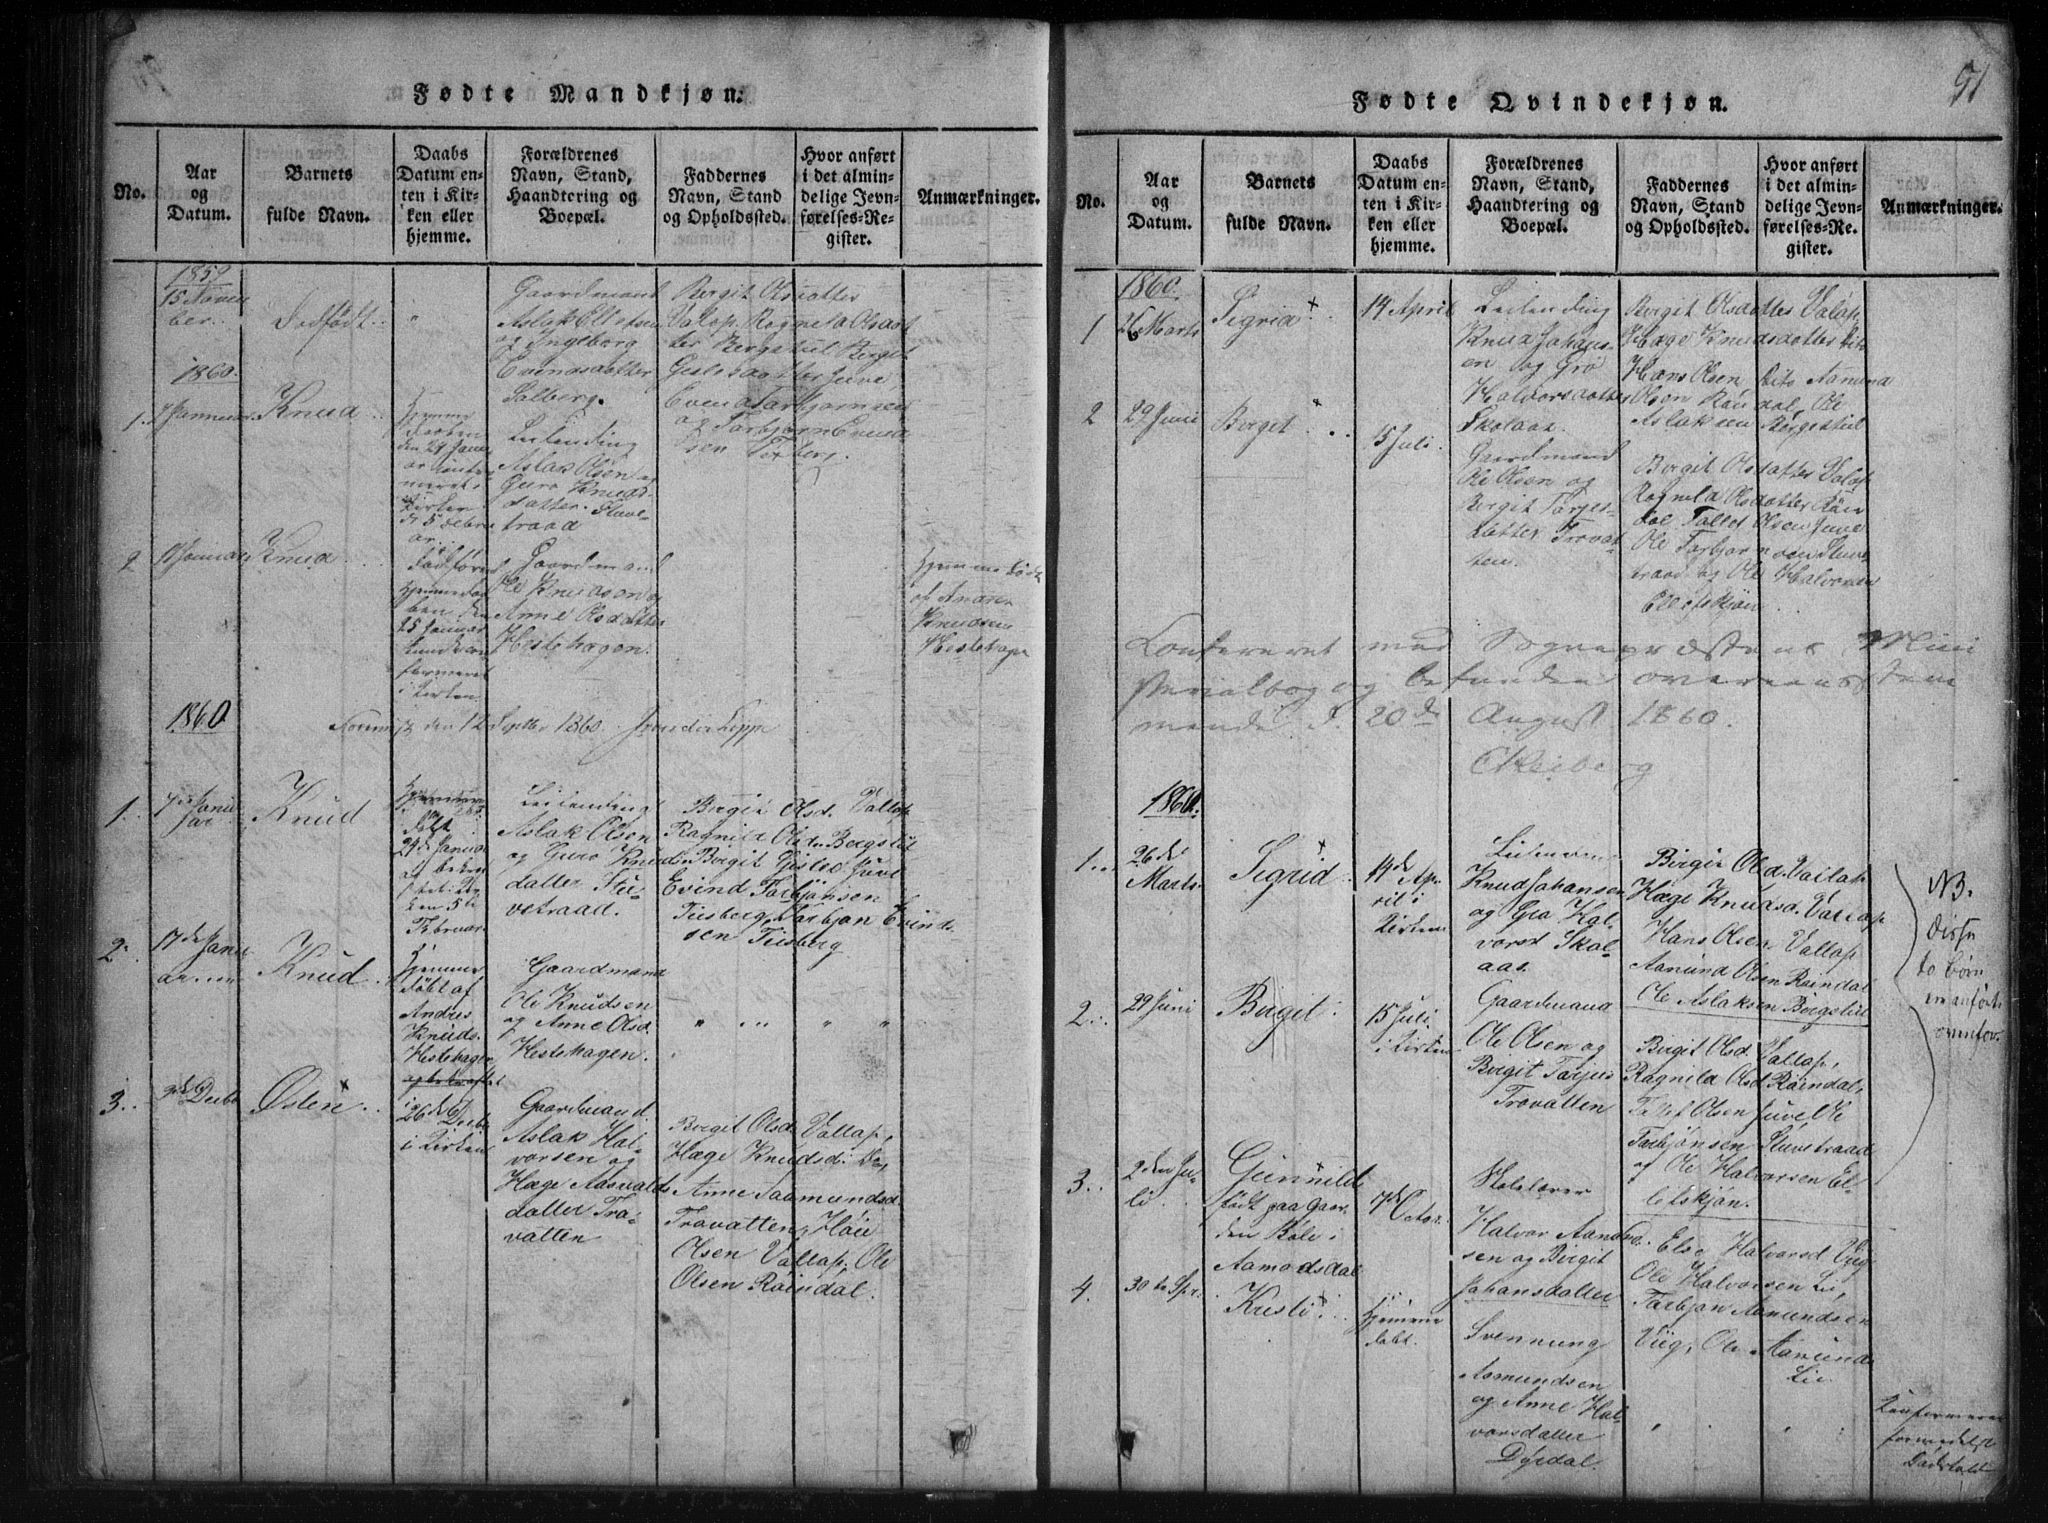 Fødte Mandkjøn.
No.
Aar og Datum.
Barnets fulde Navn.
Daabs Datum enten i Kirken eller hjemme.
Forældrenes Navn, Stand, Haandtering og Boepæl.
Faddernes Navn, Stand og Opholdssted.
Hvor anført i det almindelige Jevnførelses-Register.
Anmærkninger.
1859
15 November
Dødfødt
Gaardmand
Aslak Ellefsen
og Ingeborg
Evensdatter
Salberg.
Bergit Olsdatter
Valap. Ragnild Olsdat
ter Bergstuel Berget
Gislesdatter Juve
Even Tarbjørnsen
og Tarbjørn Evind
sen
1860.
1.
7 Januar
Knud
Hjemme
døbt
den 29 Janu
ar
Kirken
5 Febru
ar
Leilending
Aslak Olsen og
Guro Knuds
datter Stuve
traad
2
17 Januar
Knud
Hjemmedø
ben den
25 Januar
i Kirken
Gaardmand
Ole Knudsen og
Anne Olsdatter
Hestehagen.
Hjemmedøbt
af Andres
Knudsen
Hestehage
1860
den 12 Septbr 1860.
1.
7de Janu
ar
Knud
29de Januar
Kir
ken 5te
Februar
Leilending
Aslak Olsen
og Guro Knuds
datter Stu-
vetraad.
Birgit Olsd. Vallap
Ragnild Olsd. Bergstul
Birgit Gisled Juve
Evind Tarbjönsen
Teisberg, Tarbjøn Evind
sen Teisberg
2.
17de Janu
ar
Knud
Hjemme
døbt af
Andres
Knuds.
Hestehagen
Gaardmand
Ole Knudsen
og Anne Olsd.
Hestehagen.
" " " "
3.
Decbr
Østen
26de Decbr
i Kirken
Gaardmand
Aslak Hal-
vorsen og
Hæge Aasvalds
datter Tra-
vatten
Birgit Olsd. Vallap,
Hæge Knudsd. Do,
Anne Aamundsd.
Travatten, Høie
Olsen Vallap, Ole
Olsen Røindal.
Fødte Qvindekjøn.
91
No.
Aar og Datum.
Barnets fulde Navn.
Daabs Datum enten i Kirken eller hjemme.
Forældrenes Navn, Stand, Haandtering og Boepæl.
Faddernes Navn, Stand og Opholdssted.
Hvor anført i det almindelige Jevnførelses-Register.
Anmærkninger.
1860.
1
26 Marts
Sigrid
14 April
Leilending
Knud Johans
en og Gro
Halvorsdatter
Skolaas.
Birgit Olsdatter Valap.
Hæge Knudsdatter dito
Hans Olsen dito Aamund
Olsen Røndal, Ole
Aslaksen Bergestul
2
29 Juni
Birget
15 Juli
Gaardmand
Ole Olsen og
Birgit Tarjes
datter Travat
ten.
Birgit Olsdatter Valap
Ragnild Olsdatter Røn
dal Tallef Olsen Juve
Ole Tarbjørnsen Stuve
traad og Ole Halvorsen
Ellefskjøn
Konfereret med Sognepræstens Mini
sterialbog og befunden overeensstem
mende d. 20de August 1860.
C Heiberg
1860.
1.
26de
Marts
Sigrid
14de Ap-
ril i
Kirken
Knud Johansen
og Gro Hal-
vorsd Skol-
aas.
Birgit Olsd. Vallap
Hæge Knudsd. Vallap
Hans Olsen Vallap
Aamund Olsen Røindal
Ole Aslaksen Bergstul
NB.
disse
to børn
er anført
ovenfor.
2.
29 Juni
Birgit
15 Juli
i Kirken
Gaardmand
Ole Olsen og
Birgit Tarjus
Travatten
Birgit Olsd. Vallap,
Ragnild Olsd Røindal,
Tallef Olsen Juve, Ole
Tarbjønsen Stuvetraad
af Ole Halvorsen El-
lefskjøn.
3.
2den Ju-
li
Gunnild
født paa Gaar
den Bøle i
Aamodsdal
7de Octbr.
Skolelærer
Halvor Aamund
sen og Birgit
Johansdatter
Else Halvorsd Viig
Ole Halvorsen Lie,
Tarbjøn Aamundsen
Viig, Ole Aamund
Lie
4.
30te
Kristi
Hjemme
døbt.
Svennung
Aamundsen
og Anne Hal-
vorsdatter
Dyrdal.
" " "
formedelst